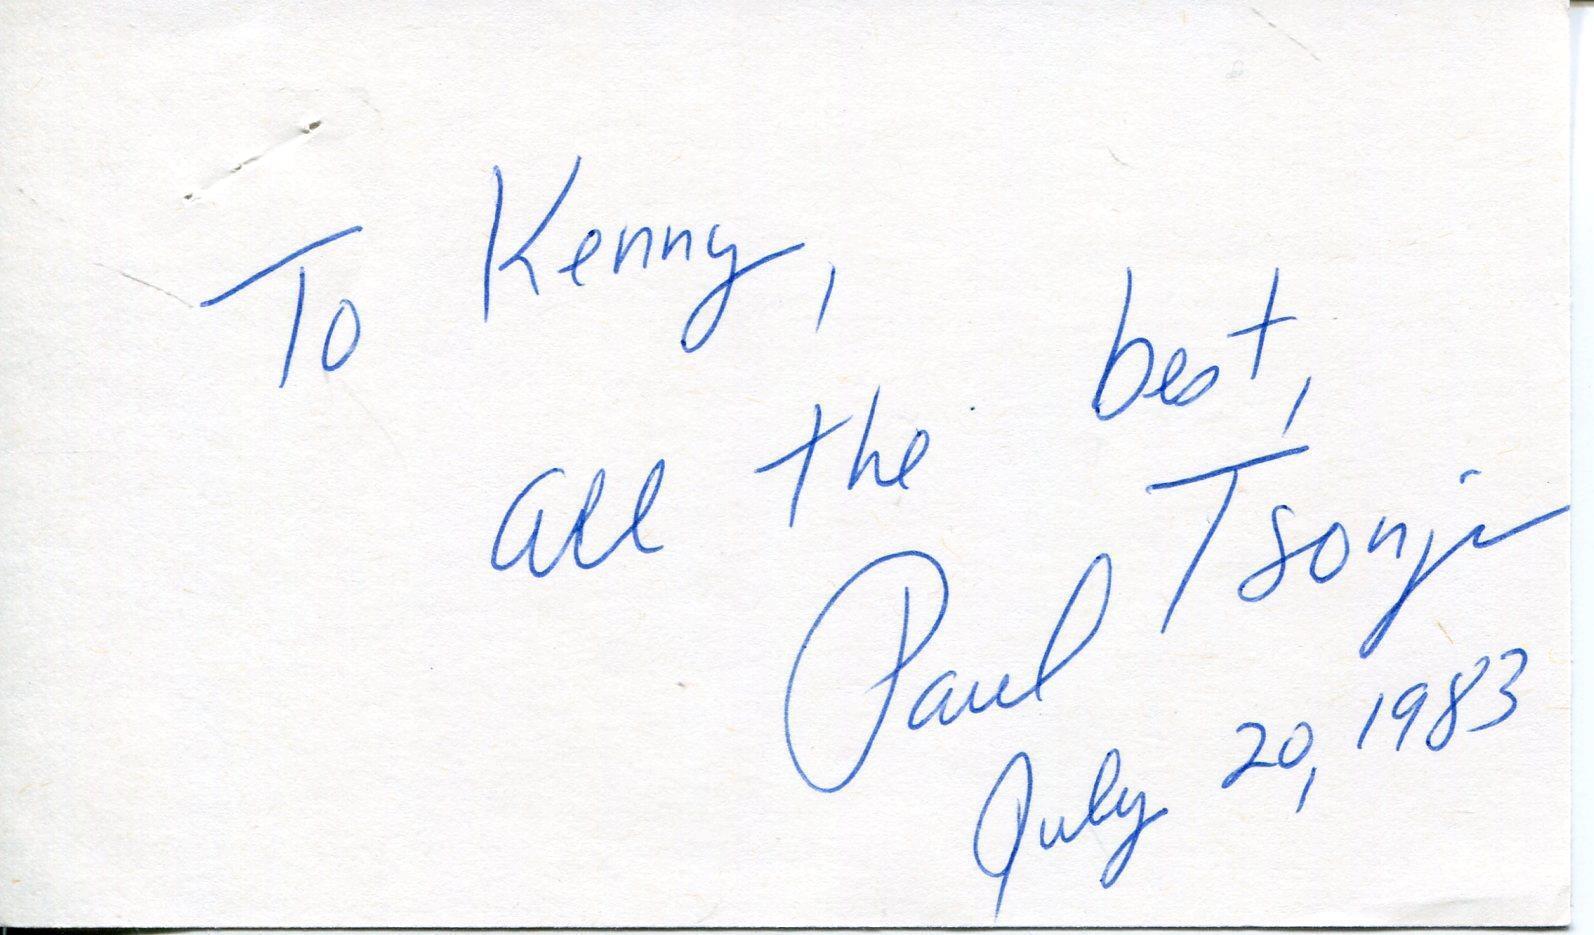 To Kenny,
all the best,
Paul Tsongas
July 20, 1983